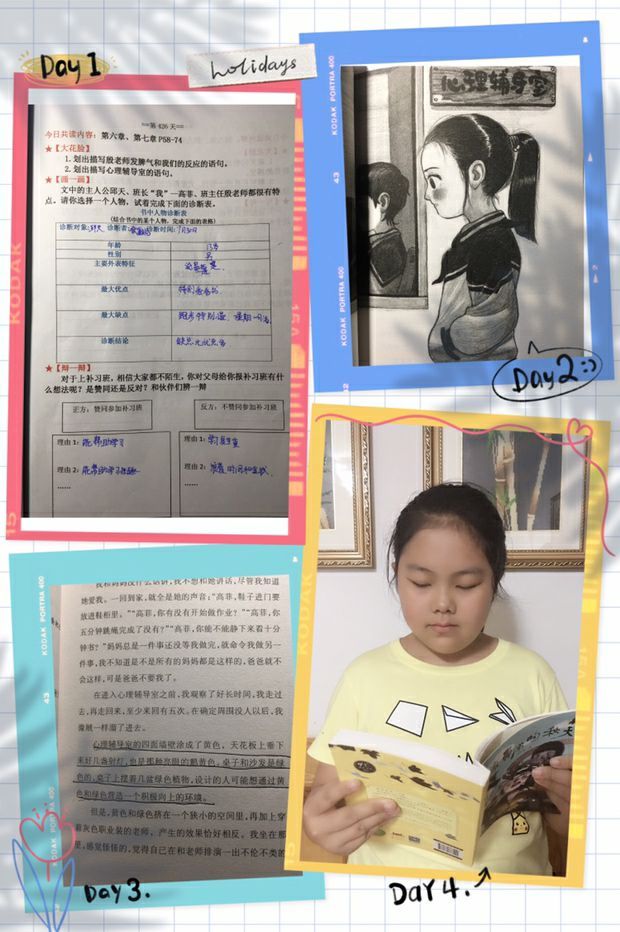 Day 1
holidays
==第 426 天==
今日共读内容：第六章、第七章 P58-74
★【大花脸】
1. 划出描写殷老师发脾气和我们的反应的语句。
2. 划出描写心理辅导室的语句。
★【画一画】
文中的主人公邱天、班长“我”—高菲、班主任殷老师都很有特
点。请你选择一个人物，试着完成下面的诊断表。
书中人物诊断表
（结合书中的某个人物，完成下面的表格）
诊断对象: 邱天 诊断者: 诊断时间: 7月30日
年龄
性别 男
主要外表特征
最大优点
最大缺点 跑步特别慢
诊断结论 缺点比优点多
★【辩一辩】
对于上补习班，相信大家都不陌生，你对父母给你报补习班有什
么想法呢？是赞同还是反对？和伙伴们辨一辨
正方：赞同参加补习班 反方：不赞同参加补习班
理由 1: 能帮助学习 理由 1:
理由 2: 理由 2: 浪费时间和金钱
…… ……
心理辅导室
KODAK PORTRA 400
43
Day 2 :)
我和妈妈没什么话讲，我不想和她讲话，尽管我知道
她爱我。一回到家，就全是她的声音：“高菲，鞋子进门要
放进鞋柜里。”“高菲，你有没有开始做作业？”“高菲，你
五分钟跳绳完成了没有？”“高菲，你能不能静下来看十分
钟书？”妈妈总是一件事还没等我做完，就命令我做另一
件事，我不知道是不是所有的妈妈都是这样的，爸爸就不
会这样，可是爸爸不要我了。
在进入心理辅导室之前，我观察了好长时间，我走过
去，再走回来，至少来回有五次。在确定周围没人以后，我
像贼一样溜了进去。
心理辅导室的四面墙壁涂成了黄色，天花板上垂下
来好几盏射灯，也是那种亮眼的鹅黄色，桌子和沙发是绿
色的，桌子上摆着几盆绿色植物，设计的人可能想通过黄
色和绿色营造一个积极向上的环境。
但是，黄色和绿色挤在一个狭小的空间里，再加上穿
着灰色职业装的老师，产生的效果恰好相反。我坐在那
里，感觉怪怪的，觉得自己在和老师排演一出不伦不类的
KODAK PORTRA 400
43
Day 3.
Day 4.